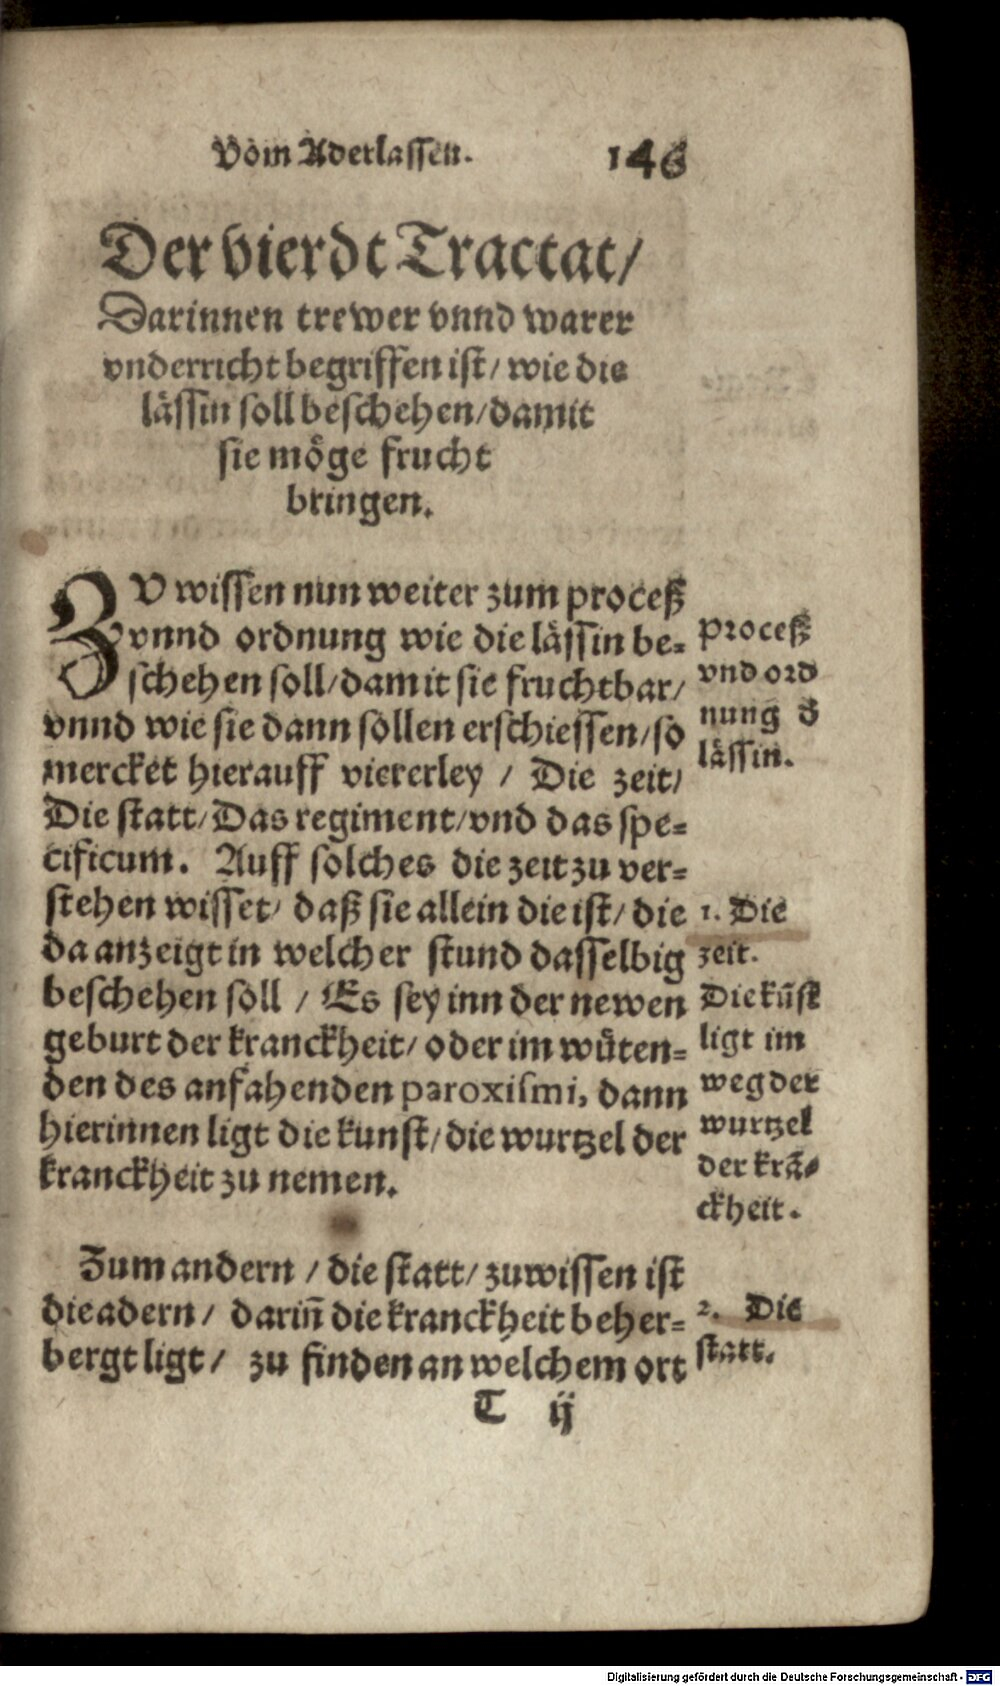 Vom Aderlassen. 146
Der vierdt Tractat/
Darinnen trewer vnnd warer
vnderricht begriffen ist/ wie die
lässin soll beschehen/damit
sie möge frucht
bringen.
ZV wissen nun weiter zum proceß
vnnd ordnung wie die lässin be-
schehen soll/damit sie fruchtbar/
vnnd wie sie dann sollen erschiessen/so
mercket hierauff viererley / Die zeit/
Die statt/Das regiment/vnd das spe-
cificum. Auff solches die zeit zu ver-
stehen wisset/ daß sie allein die ist/ die
da anzeigt in welcher stund dasselbig
beschehen soll / Es sey inn der newen
geburt der kranckheit/ oder im wüten-
den des anfahenden paroxismi, dann
hierinnen ligt die kunst/die wurtzel der
kranckheit zu nemen.
Zum andern / die statt/ zuwissen ist
die adern / dariñ die kranckheit beher-
bergt ligt / zu finden an welchem ort
T ij
Proceß
vnd ord
nung d̕
lässin.
1. Die
zeit.
Die kũst
ligt im
weg der
wurtzel
der krã-
ckheit.
2. Die
statt.
Digitalisierung gefördert durch die Deutsche Forschungsgemeinschaft - DFG